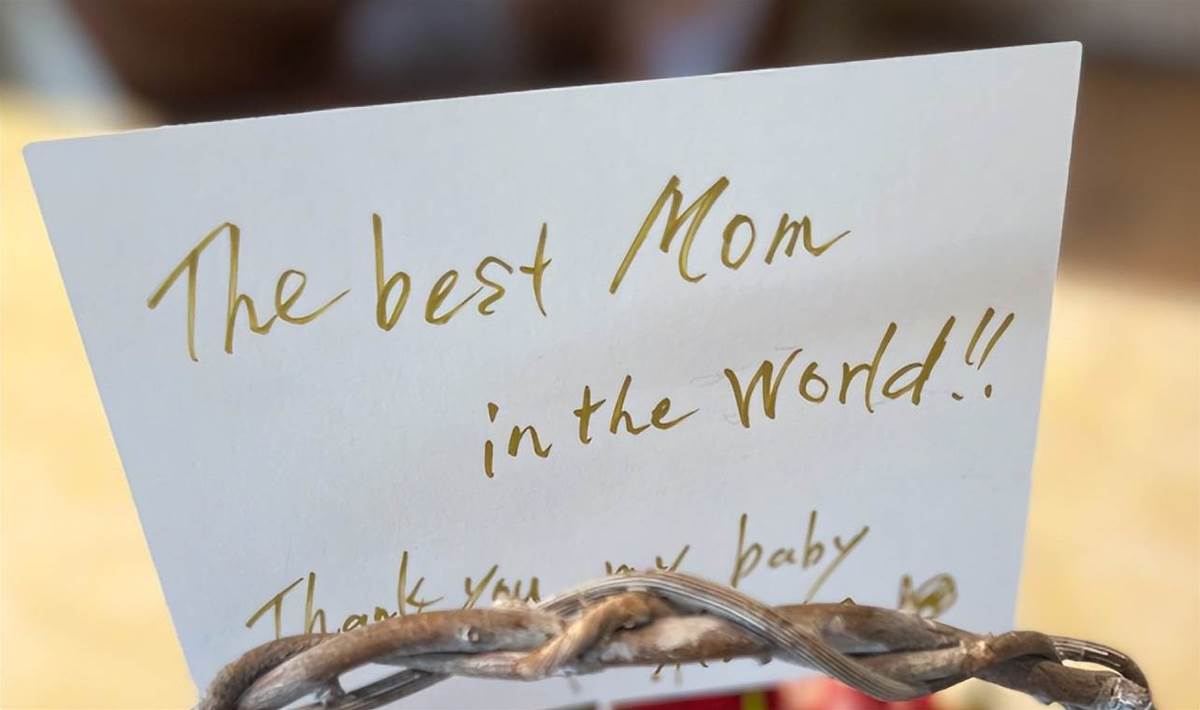 The best Mom
in the World!!
Thank you my baby